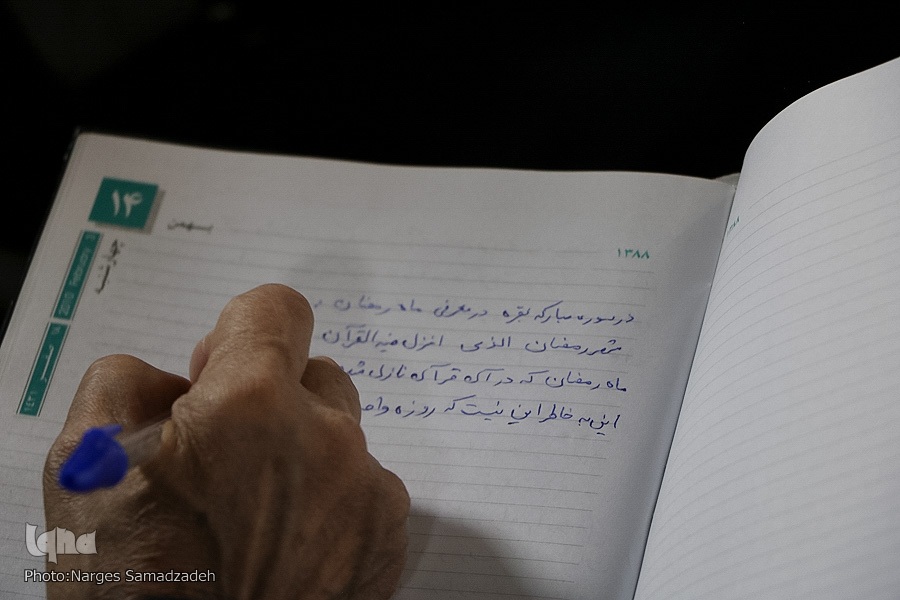 ۱۴
بهمن
چهارشنبه
۱۳۸۸
2010 February 3
۱۸ صفر ۱۴۳۱
در سوره مبارکه بقره در معرفی ماه رمضان
شهر رمضان الذی انزل فیه القرآن
ماه رمضان که در آن قرآن نازل شد
این به خاطر این نیست که روزه واجب
iqna
Photo:Narges Samadzadeh